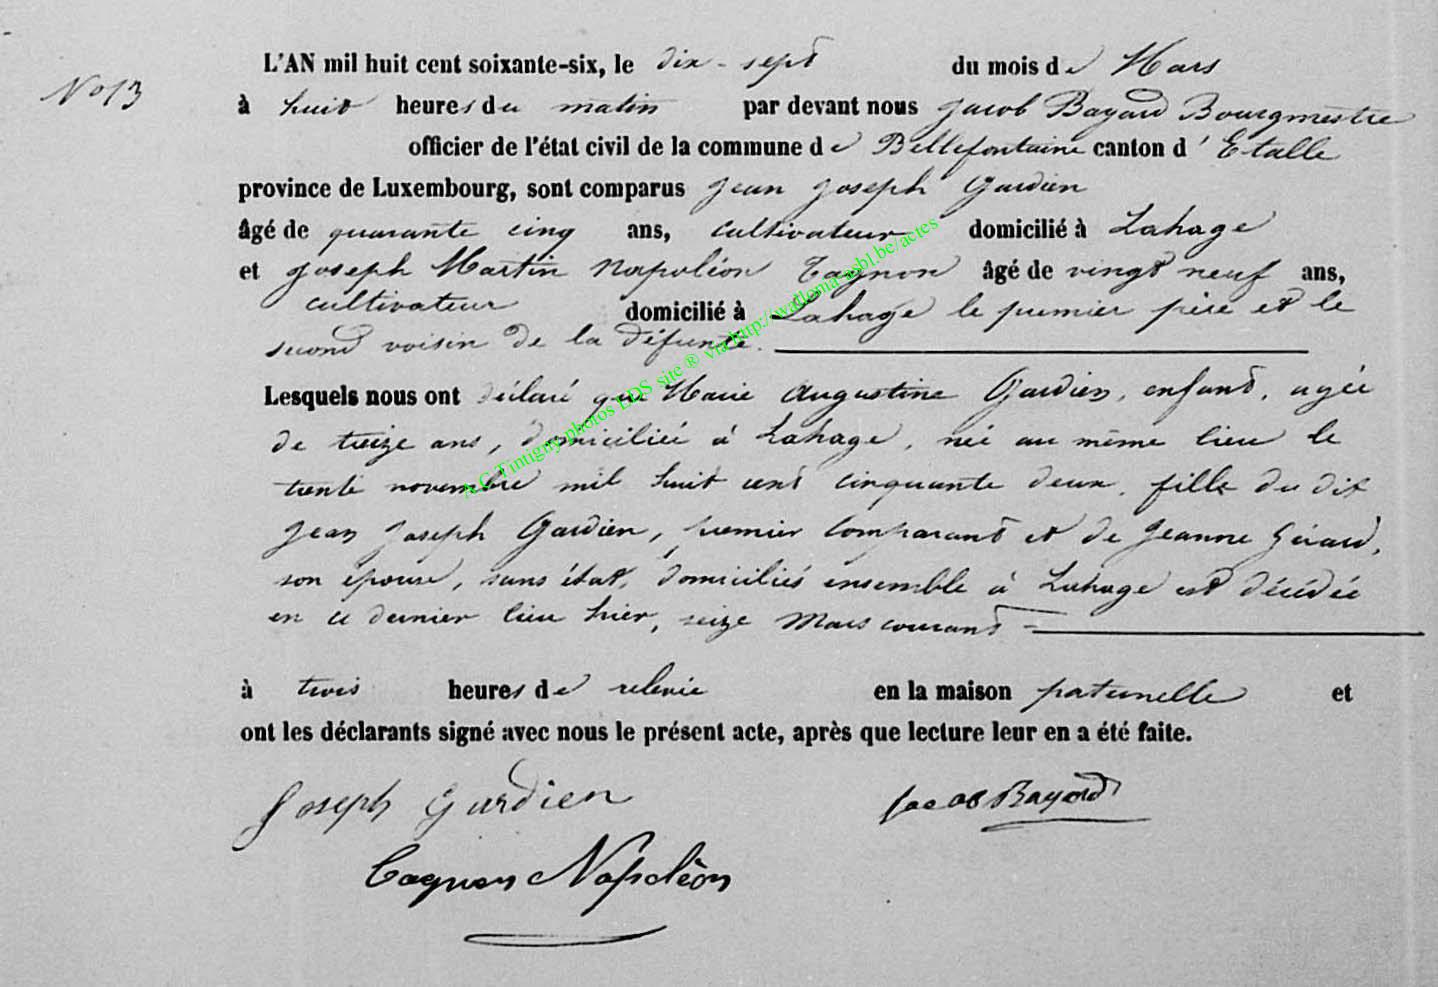 L'AN mil huit cent soixante-six, le dix-sept du mois de Mars
No 13
à huit heures du matin par devant nous Jacob Bayard Bourgmestre
officier de l'état civil de la commune de Bellefontaine canton d'Etalle
province de Luxembourg, sont comparus Jean Joseph Gardien
âgé de quarante cinq ans, cultivateur domicilié à Lahage
et Joseph Martin Napoléon Cagnon âgé de vingt neuf ans,
cultivateur domicilié à Lahage le premier père et le
second voisin de la défunte.
Lesquels nous ont déclaré que Marie Augustine Gardien, enfant, agée
de treize ans, domiciliée à Lahage, née au même lieu le
trente novembre mil huit cent cinquante deux, fille du dit
Jean Joseph Gardien, premier comparant et de Jeanne Gérard,
son épouse, sans état, domiciliés ensemble à Lahage est décédée
en ce dernier lieu hier, seize Mars courant
à trois heures de relevée en la maison paternelle et
ont les déclarants signé avec nous le présent acte, après que lecture leur en a été faite.
Joseph Gardien
Jacob Bayard
Cagnon Napolèon
A.C.Tintigny photos EDS site ® via http://wallonia-asbl.be/actes